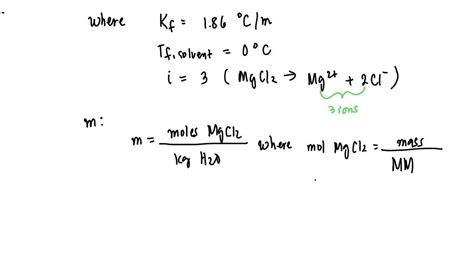 where Kf = 1.86 °C/m
Tf, solvent = 0°C
i = 3 ( MgCl2 → Mg2+ + 2Cl- )
3 ions
m:
m = moles MgCl2 / kg H2O where mol MgCl2 = mass / MM